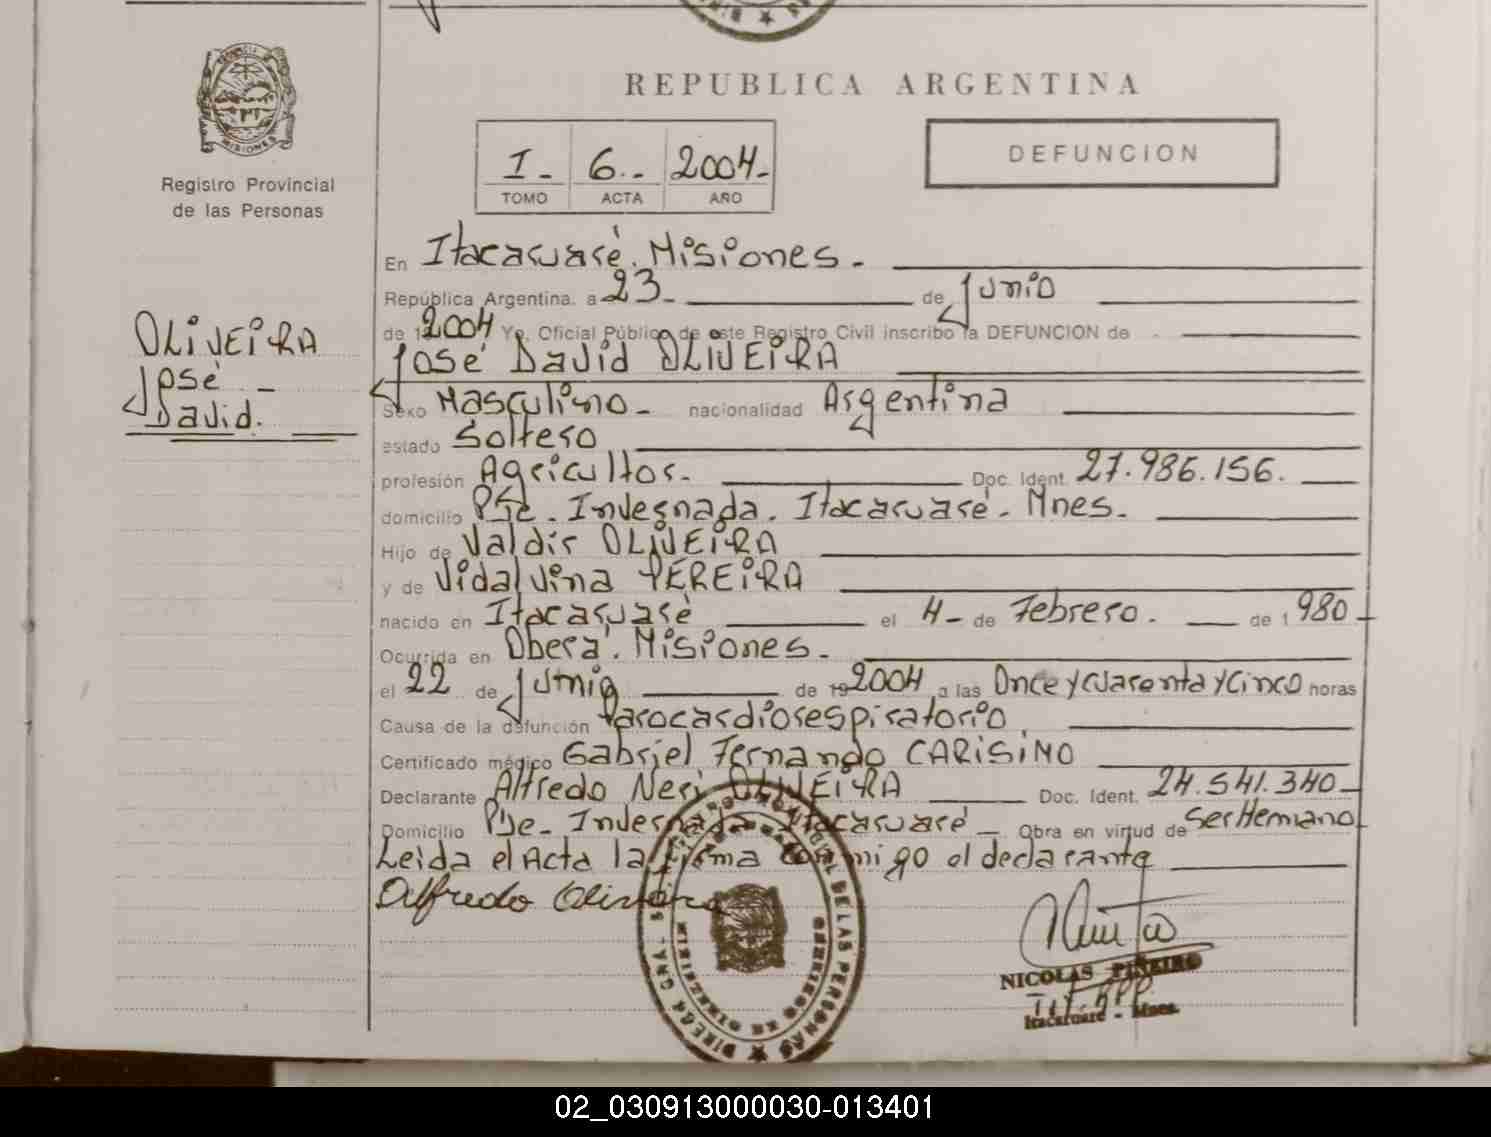 REPUBLICA ARGENTINA
Registro Provincial
de las Personas
MISIONES
I- 6.- 2004-
TOMO ACTA AÑO
DEFUNCION
OLIVEIRA
José -
David.
En Itacaruaré. Misiones.-
República Argentina. a 23- de Junio
de 2004 Yo, Oficial Público de este Registro Civil inscribo la DEFUNCION de
José David OLIVEIRA
Sexo Masculino- nacionalidad Argentina
estado Soltero
profesión Agricultor. Doc. Ident. 27.986.156.
domicilio Pje. Invernada. Itacaruaré- Mnes.
Hijo de Valdir OLIVEIRA
y de Vidalvina PEREIRA
nacido en Itacaruaré el 4- de Febrero. de 1980
Ocurrida en Oberá. Misiones.-
el 22 de Junio de 192004 a las Once y cuarenta y cinco horas
Causa de la defunción Parocardiorespiratorio
Certificado médico Gabriel Fernando CARISIMO
Declarante Alfredo Neri OLIVEIRA Doc. Ident. 24.541.340-
Domicilio Pje- Invernada Itacaruaré - Obra en virtud de Ser Hermano
Leida el Acta la firma conmigo el declarante
Alfredo Oliveira
NICOLAS PIÑEIRO
Itacaruaré - Mnes.
02_030913000030-013401